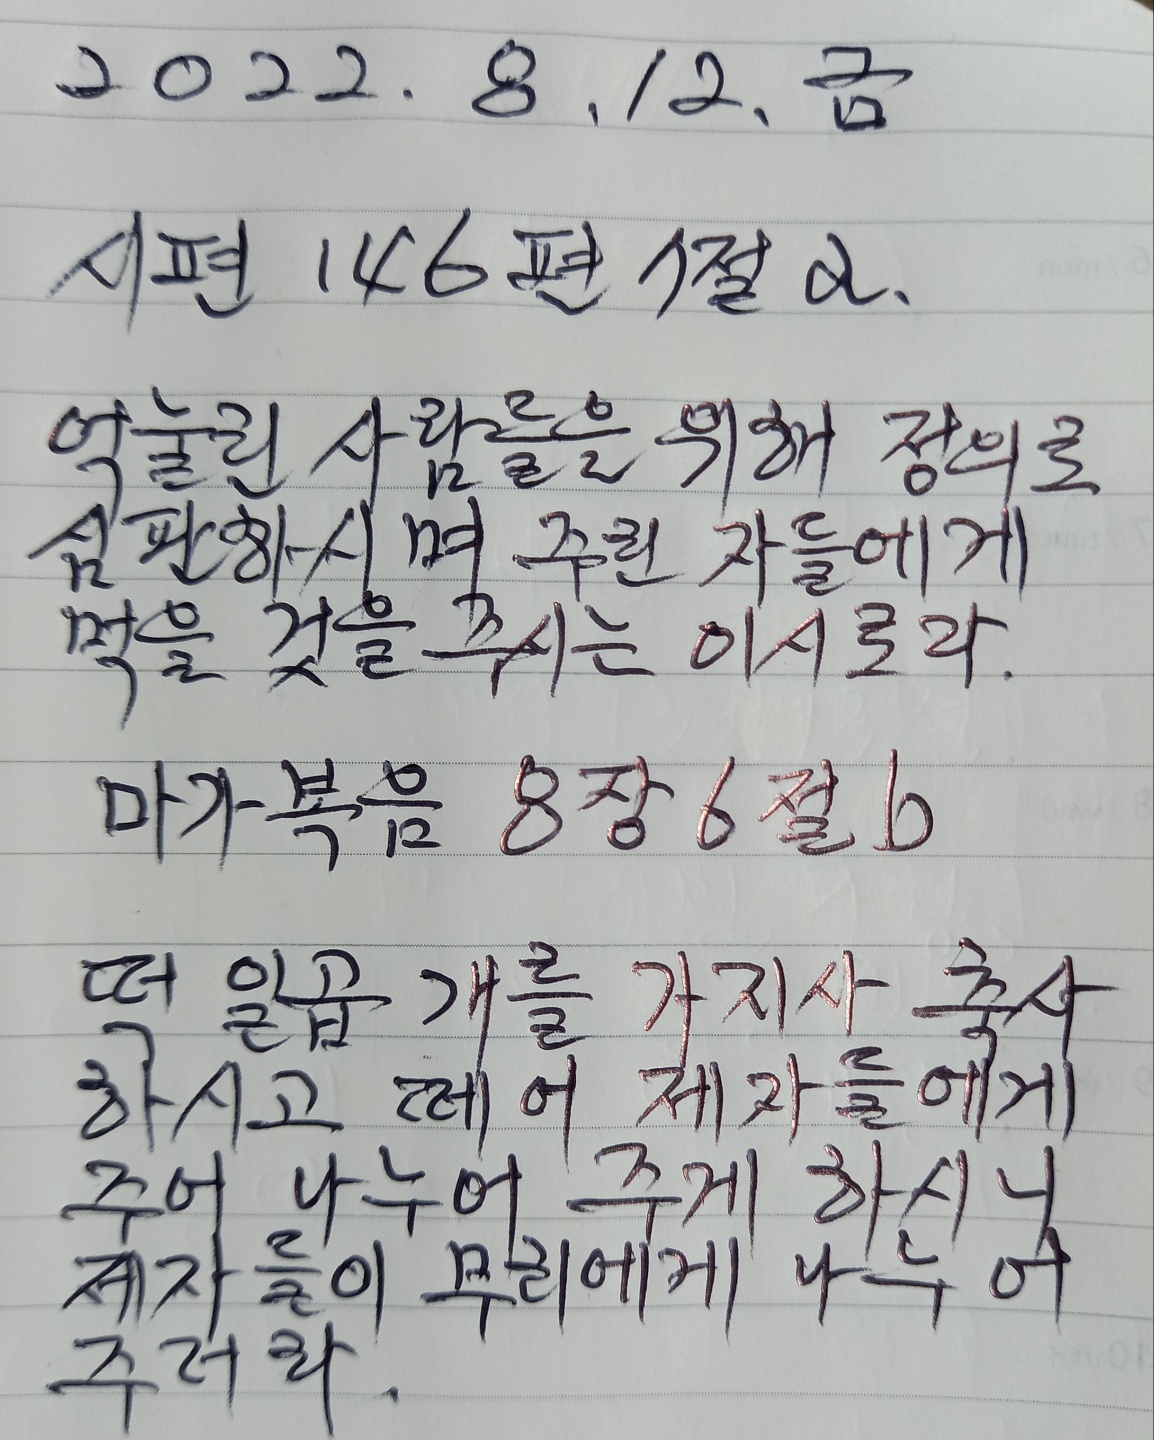 2022. 8. 12. 금
시편 146편 7절 a.
억눌린 사람들을 위해 정의로
심판하시며 주린 자들에게
먹을 것을 주시는 이시로라.
마가복음 8장 6절 b
떡 일곱 개를 가지사 축사
하시고 떼어 제자들에게
주어 나누어 주게 하시니
제자들이 무리에게 나누어
주더라.